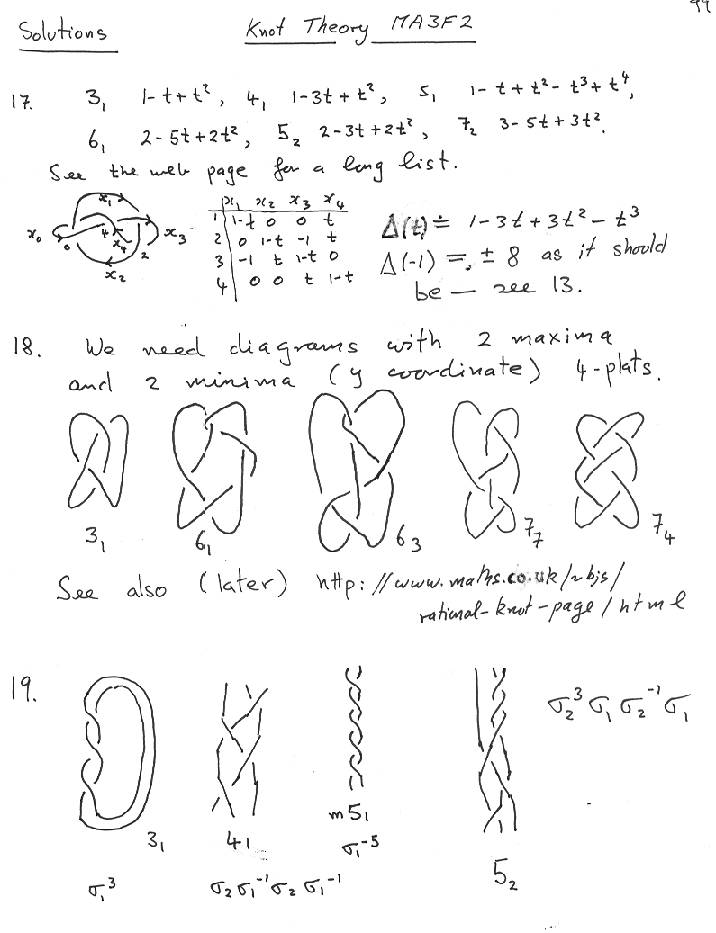 Solutions Knot Theory MA3F2
17. 3₁ 1-t+t², 4₁ 1-3t+t², 5₁ 1-t+t²-t³+t⁴,
6₁ 2-5t+2t², 5₂ 2-3t+2t², 7₂ 3-5t+3t².
See the web page for a long list.
x₁ x₀ x₃ x₄ x₂ 4 2
x₁ x₂ x₃ x₄
1 1-t 0 0 t
2 0 1-t -1 t
3 -1 t 1-t 0
4 0 0 t 1-t
Δ(t) ≐ 1-3t+3t²-t³
Δ(-1) = ± 8 as it should
be — see 13.
18. We need diagrams with 2 maxima
and 2 minima (y coordinate) 4-plats.
3₁ 6₁ 6₃ 7₇ 7₄
See also (later) http://www.maths.co.uk/~bjs/
rational-knot-page/html
19. σ₂³ σ₁ σ₂⁻¹ σ₁
3₁ 4₁ m5₁ 5₂
σ₁³ σ₂σ₁⁻¹σ₂σ₁⁻¹ σ₁⁻⁵